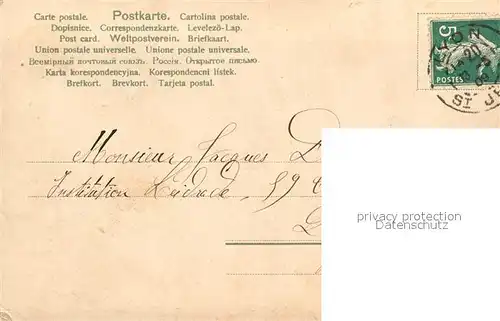 Carte postale. Postkarte. Cartolina postale.
Dopisnice. Correspondenzkarte. Levelező-Lap.
Post card. Weltpostverein. Briefkaart.
Union postale universelle. Unione postale universale.
Всемірный почтовый союзъ. Россія. Открытое письмо.
Karta korespondencyjna. Korespondenční lístek.
Brefkort. Brevkort. Tarjeta postal.
5
POSTES
ST JE
Monsieur Jacques D
Institution Leidrade, 59
privacy protection
Datenschutz